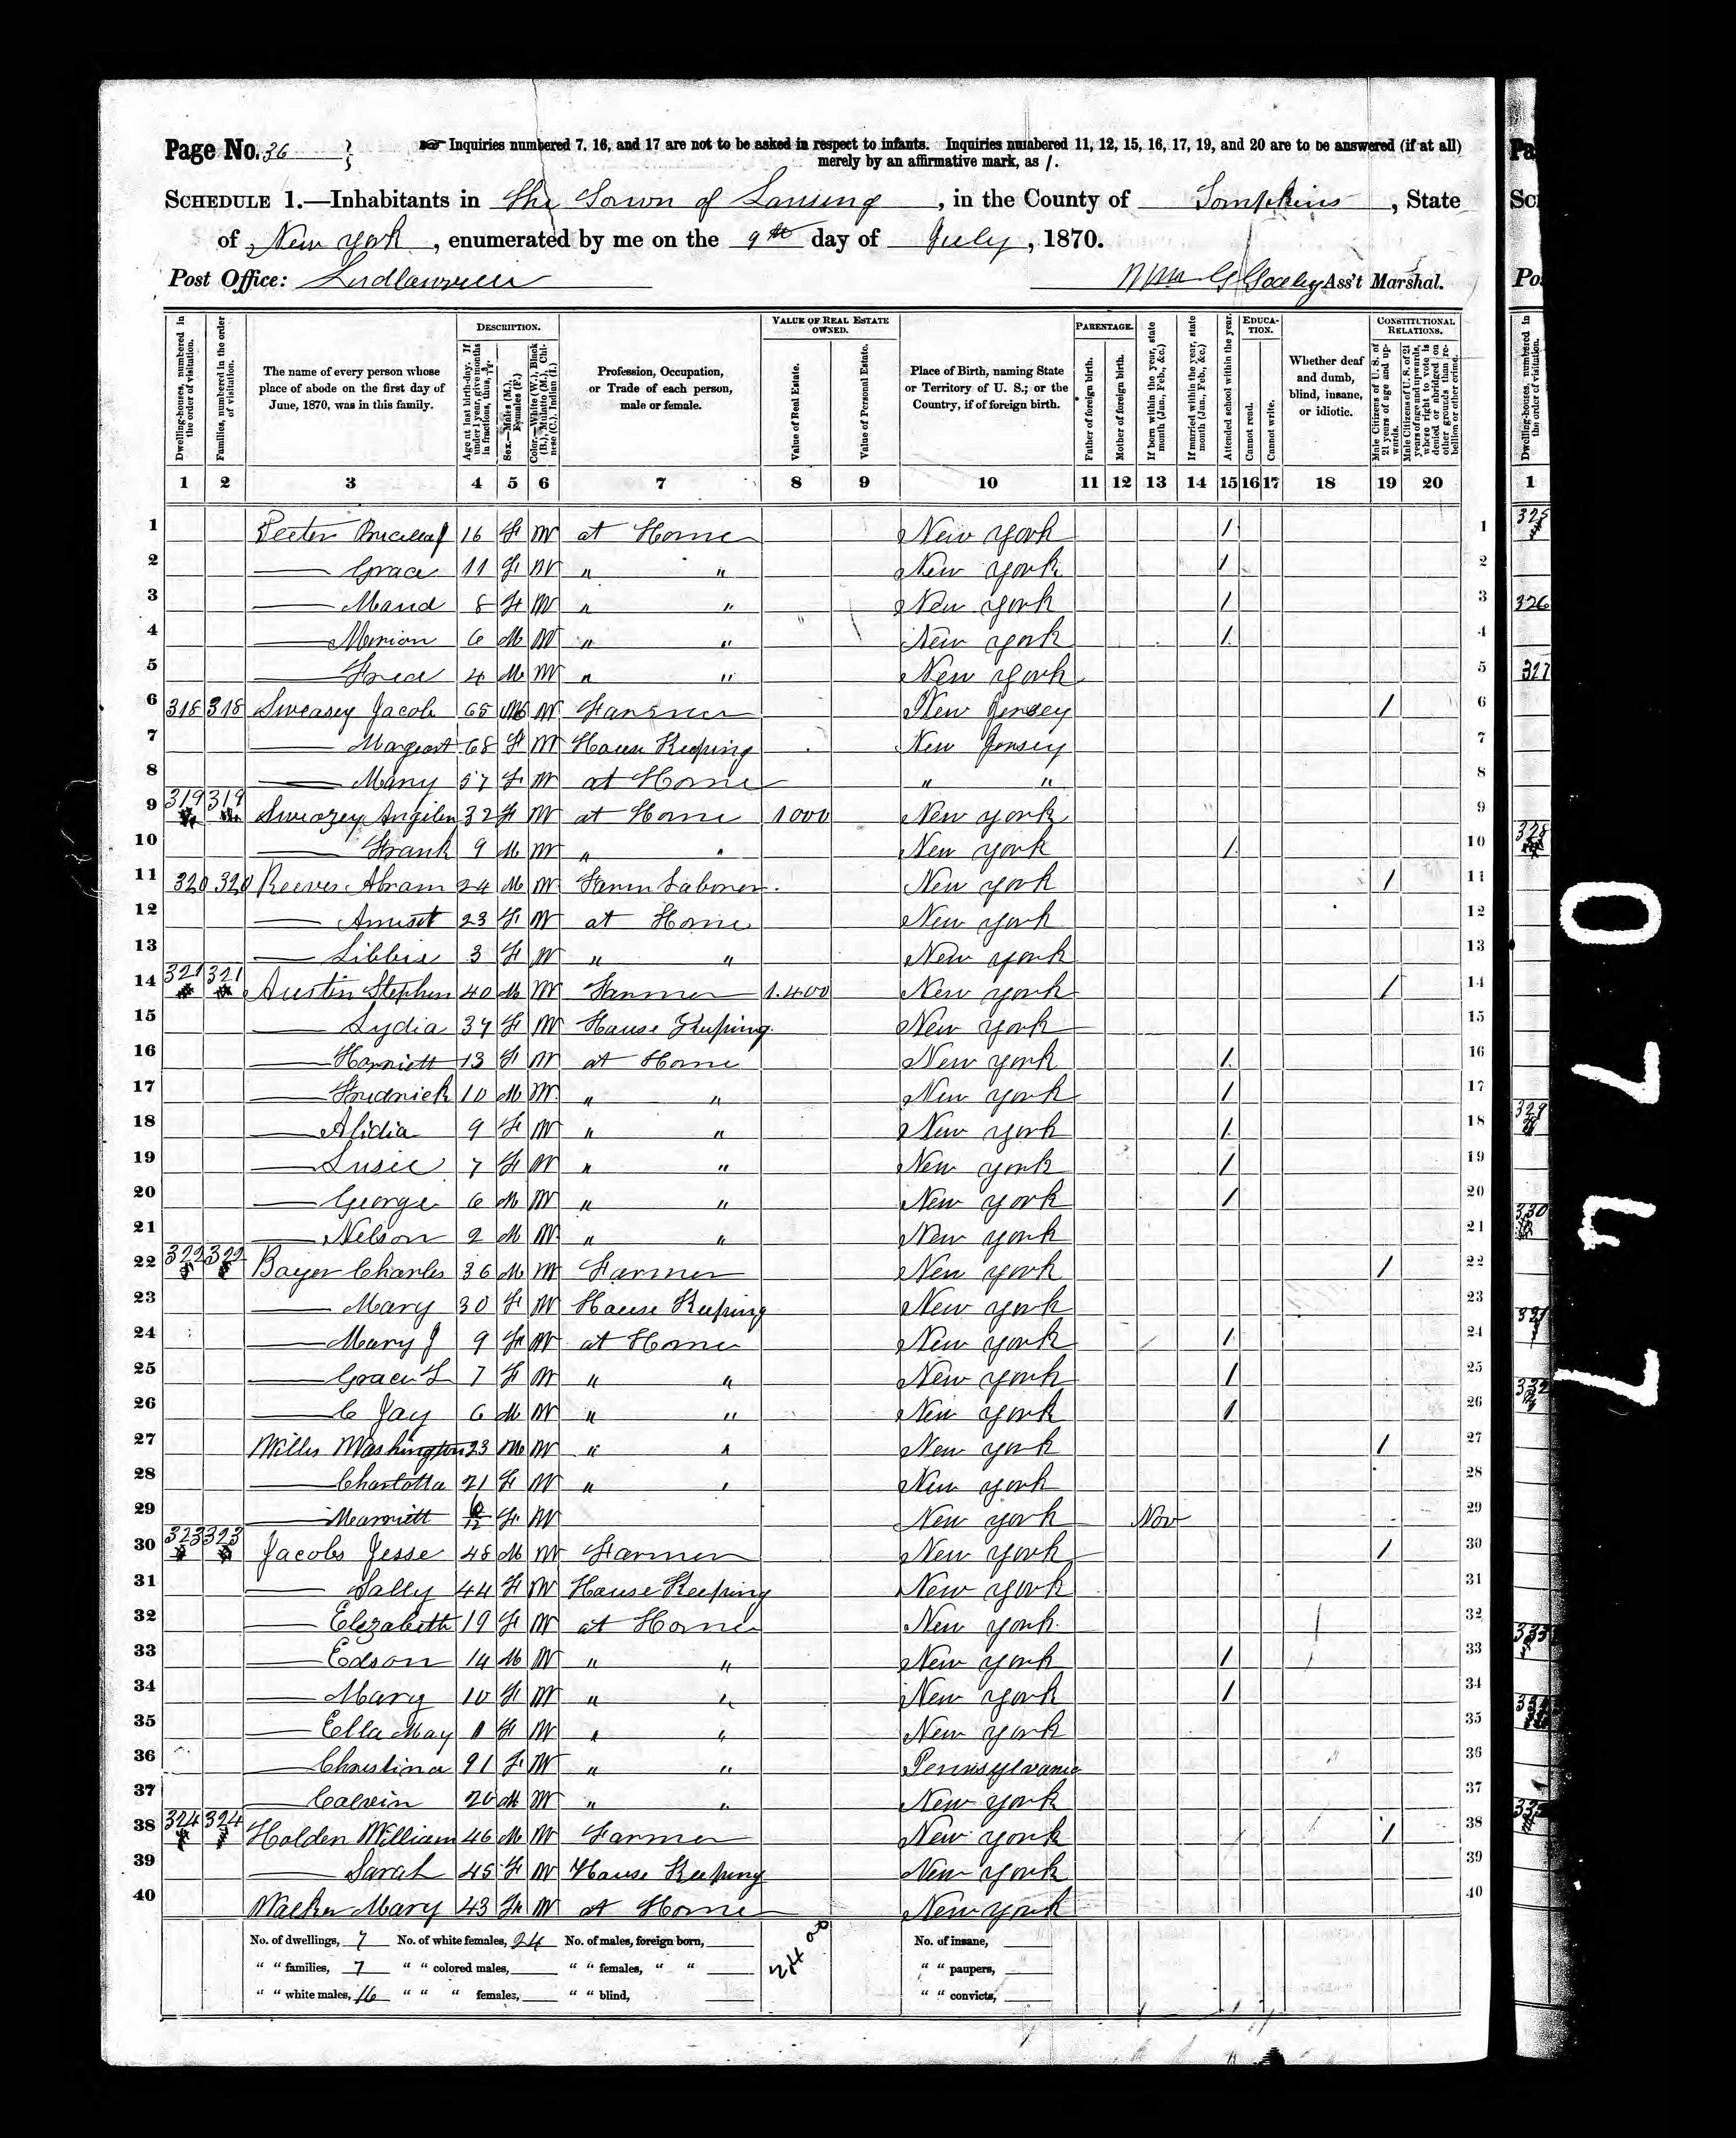 Page No. 36
☞ Inquiries numbered 7, 16, and 17 are not to be asked in respect to infants. Inquiries numbered 11, 12, 15, 16, 17, 19, and 20 are to be answered (if at all)
merely by an affirmative mark, as /.
SCHEDULE 1.—Inhabitants in the Town of Lansing, in the County of Tompkins, State
of New York, enumerated by me on the 9th day of July, 1870.
Post Office: Ludlowville
Wm G Ass't Marshal.
DESCRIPTION. VALUE OF REAL ESTATE OWNED. PARENTAGE. EDUCATION. CONSTITUTIONAL RELATIONS.
Dwelling-houses, numbered in the order of visitation.
Families, numbered in the order of visitation.
The name of every person whose place of abode on the first day of June, 1870, was in this family.
Age at last birth-day. If under 1 year, give months in fractions, thus, 3/12.
Sex.—Males (M.), Females (F.)
Color.—White (W.), Black (B.), Mulatto (M.), Chinese (C.), Indian (I.)
Profession, Occupation, or Trade of each person, male or female.
Value of Real Estate.
Value of Personal Estate.
Place of Birth, naming State or Territory of U. S.; or the Country, if of foreign birth.
Father of foreign birth.
Mother of foreign birth.
If born within the year, state month (Jan., Feb., &c.)
If married within the year, state month (Jan., Feb., &c.)
Attended school within the year.
Cannot read.
Cannot write.
Whether deaf and dumb, blind, insane, or idiotic.
Male Citizens of U. S. of 21 years of age and upwards.
Male Citizens of U. S. of 21 years of age and upwards, whose right to vote is denied or abridged on other grounds than rebellion or other crime.
1 2 3 4 5 6 7 8 9 10 11 12 13 14 15 16 17 18 19 20
1 Teeter 16 F W at Home New York / 1
2 — Grace 11 F W " " New York / 2
3 — Maud 8 F W " " New York / 3
4 — Merion 6 M W " " New York / 4
5 — Fred 4 M W " " New York 5
6 318 318 Sweasey Jacob 65 M W Farmer New Jersey / 6
7 — Margeart 68 F W House Keeping New Jersey 7
8 — Mary 57 F W at Home " " 8
9 319 319 Sweazey Angilen 32 F W at Home 1000 New York 9
10 — Frank 9 M W " " New York / 10
11 320 320 Reeves Abram 24 M W Farm Laborer New York / 11
12 — 23 F W at Home New York 12
13 — Libbie 3 F W " " New York 13
14 321 321 Austin Stephen 40 M W Farmer 1.400 New York / 14
15 — Lydia 37 F W House Keeping New York 15
16 — Harriett 13 F W at Home New York / 16
17 — Fredrick 10 M W " " New York / 17
18 — Alidia 9 F W " " New York / 18
19 — Susie 7 F W " " New York / 19
20 — George 6 M W " " New York / 20
21 — Nelson 2 M W " " New York 21
22 322 322 Boyer Charles 36 M W Farmer New York / 22
23 — Mary 30 F W House Keeping New York 23
24 — Mary J 9 F W at Home New York / 24
25 — Grace L 7 F W " " New York / 25
26 — C Jay 6 M W " " New York / 26
27 Willis Washington 23 M W " " New York / 27
28 — Charlotta 21 F W " " New York 28
29 — 6/12 F W New York Nov 29
30 323 323 Jacobs Jesse 48 M W Farmer New York / 30
31 — Sally 44 F W House Keeping New York 31
32 — Elezabeth 19 F W at Home New York 32
33 — Edson 14 M W " " New York / 33
34 — Mary 10 F W " " New York / 34
35 — Ella May 1 F W " " New York 35
36 — Christina 91 F W " " Pennsylvania 36
37 — Calvin 20 M W " " New York 37
38 324 324 Holden William 46 M W Farmer New York / 38
39 — Sarah 45 F W House Keeping New York 39
40 Walker Mary 43 F W at Home New York 40
No. of dwellings, 7 No. of white females, 24 No. of males, foreign born, 2400 No. of insane,
" " families, 7 " " colored males, " " females, " " " " paupers,
" " white males, 16 " " " females, " " blind, " " convicts,
Pa
Sc
Po
Dwelling-houses, numbered in the order of visitation.
1
325
326
327
328
329
330
331
332
333
334
335
0747